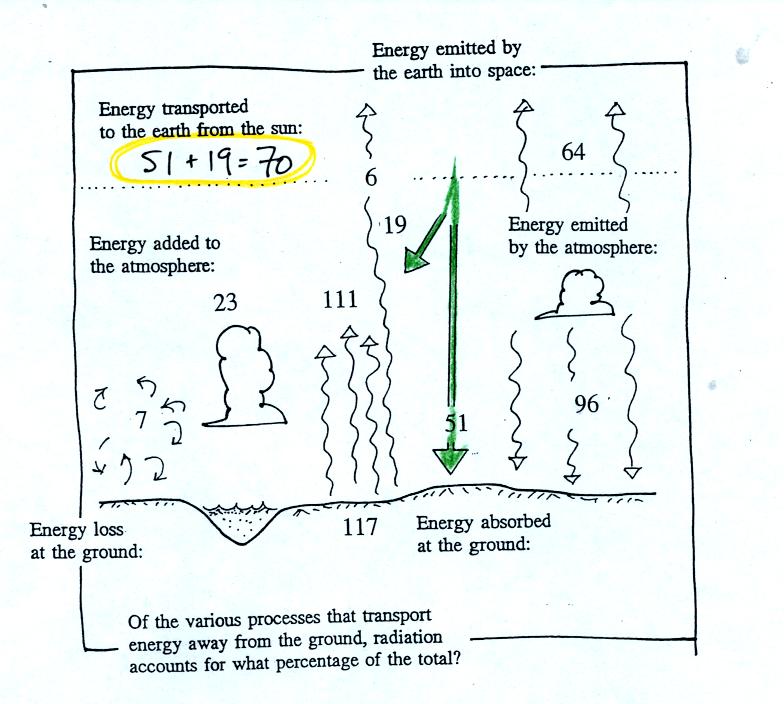 Energy emitted by
the earth into space:
Energy transported
to the earth from the sun:
51 + 19 = 70
64
6
19
Energy emitted
by the atmosphere:
Energy added to
the atmosphere:
23
111
96
7
51
Energy loss
at the ground:
117
Energy absorbed
at the ground:
Of the various processes that transport
energy away from the ground, radiation
accounts for what percentage of the total?